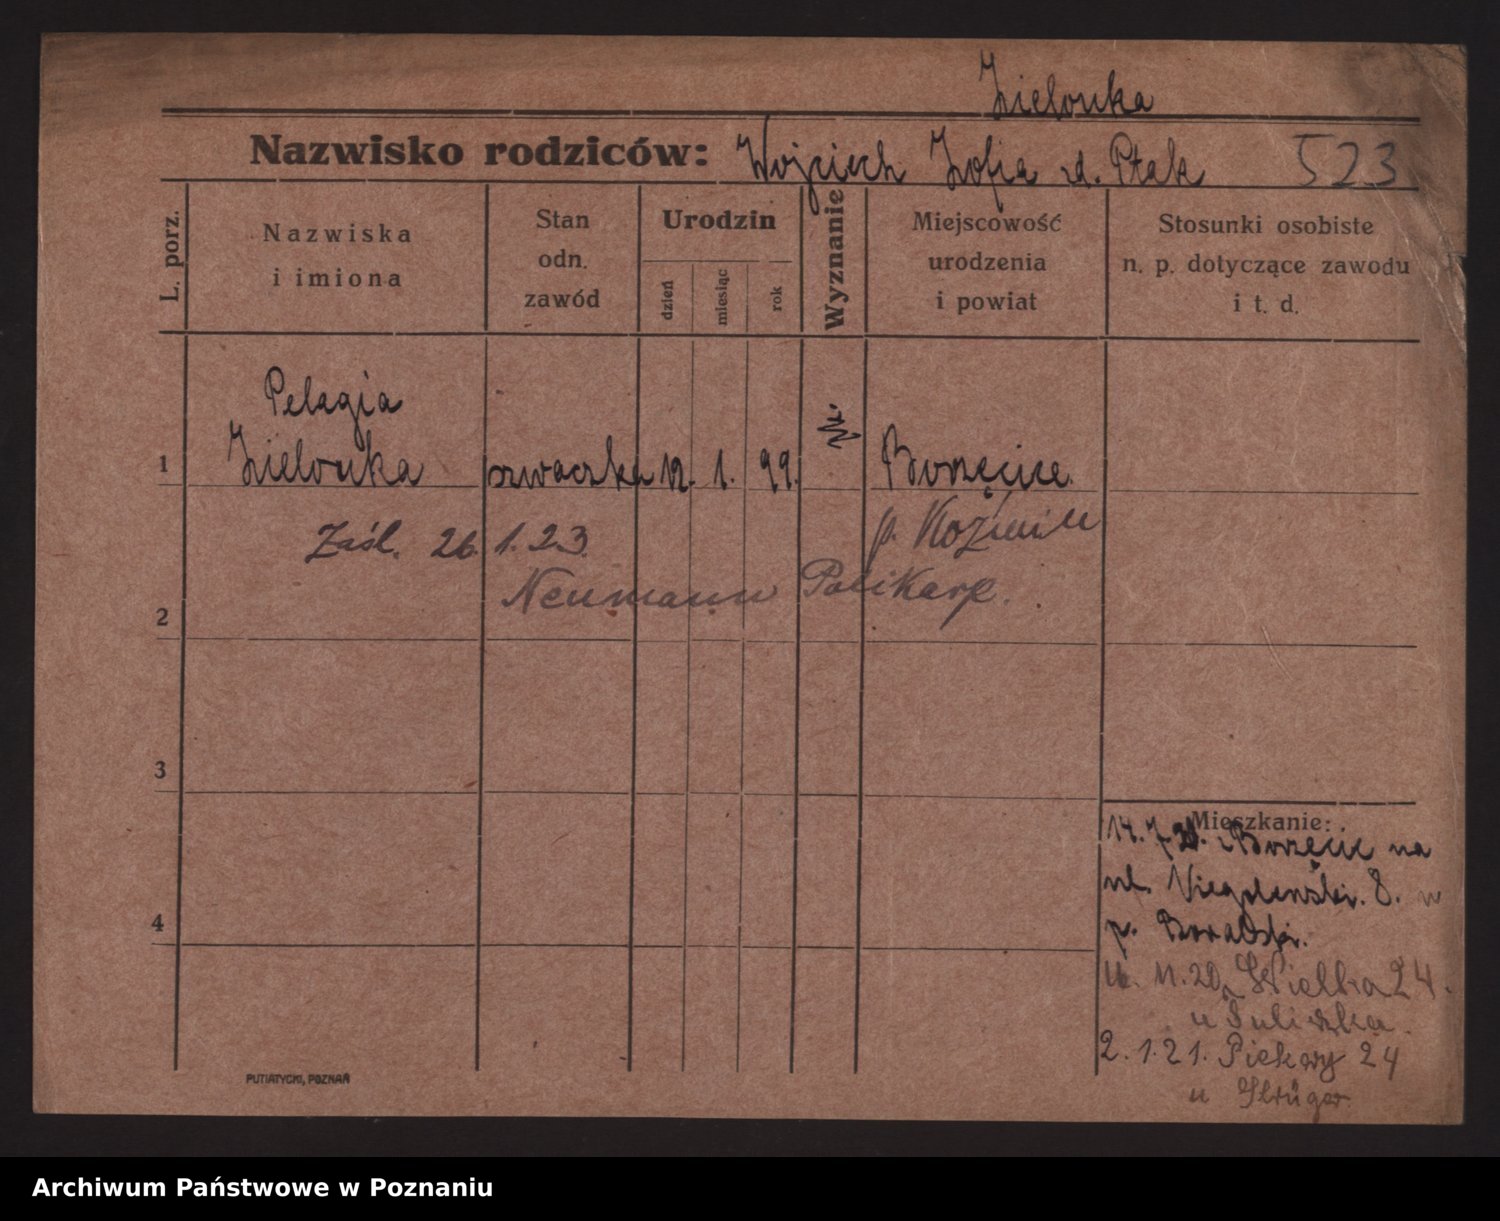 Zielonka
Nazwisko rodziców: Wojciech Zofia zd. Ptak 523
L. porz.
Nazwiska
i imiona
Stan
odn.
zawód
Urodzin
dzień
miesiąc
rok
Wyznanie
Miejscowość
urodzenia
i powiat
Stosunki osobiste
n. p. dotyczące zawodu
i t. d.
Pelagia
1 Zielonka szwaczka 12. 1. 99. Borzęcice
p. Koźmin
Zaśl. 26 1.23.
Neumann Polikarp.
2
3
4
Mieszkanie:
14. 7 20. Borzęcic na
ul. Niegolewski. 8.
p.
11.20 Wielka 24.
u
2.1.21. Piekary 24
u Strüger
PUTIATYCKI, POZNAŃ
Archiwum Państwowe w Poznaniu